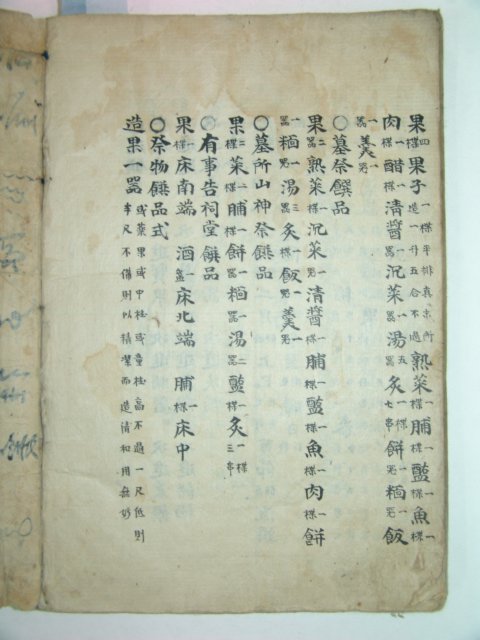 果四楪果子一楪平排真京所造一升五合不過熟菜一楪脯一楪醢一楪魚一楪
肉一楪醋一楪清醬沉菜湯五器炙一楪七串餠一楪糆一器飯一器羹一器
○墓祭饌品
果二楪熟菜一楪沉菜一楪清醬一楪脯一楪醢一楪魚一楪肉一楪餠
一器糆一器湯三器炙一楪飯一器羹一器
○墓所山神祭饌品
果二楪菜一楪脯一楪餠一器糆一器湯二器醢一楪炙一楪三串
○有事告祠堂饌品
果一楪床南端 酒一盞床北端 脯一楪床中
○祭物饌品式
造果一器 或藥果或中桂或童桂高不過一尺低則半尺不備則以精潔而造清和用無妨